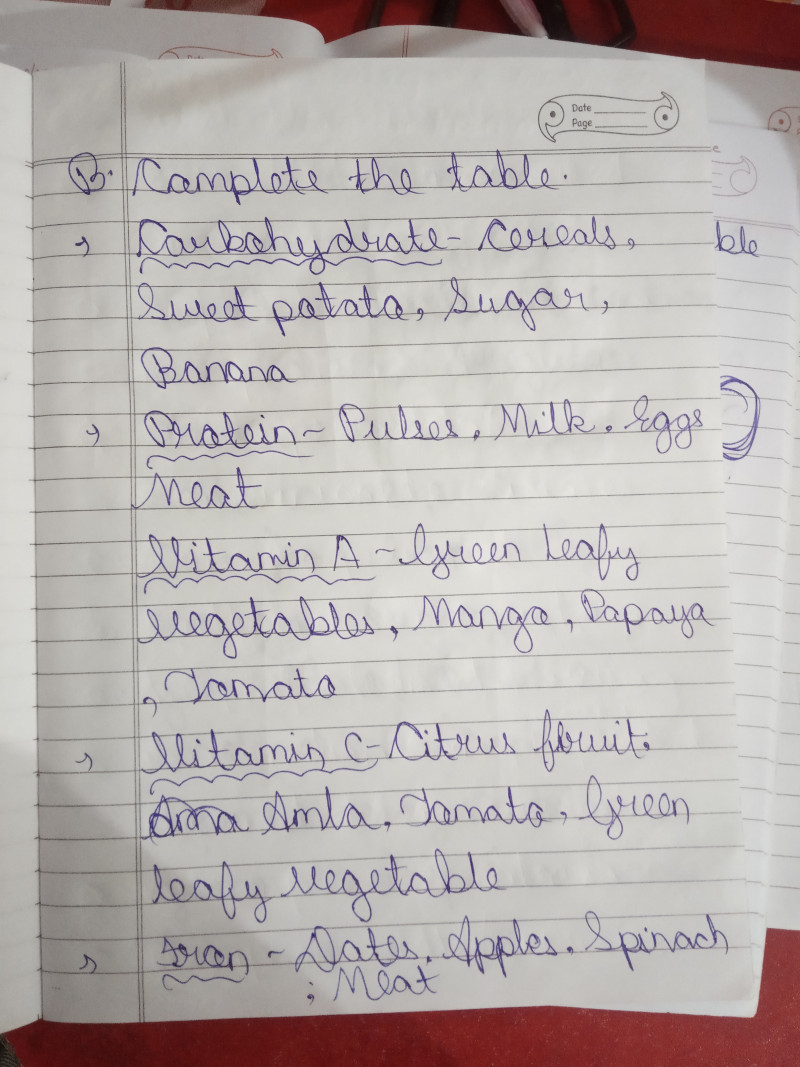 Date
Page
B. Complete the table.
→ Carbohydrate - Cereals,
Sweet potato, Sugar,
Banana
→ Protein - Pulses, Milk. Eggs
Meat
Vitamin A - Green leafy
vegetables, Mango, Papaya
, Tomato
→ Vitamin C - Citrus fruit.
Amla, Tomato, Green
leafy vegetable
→ Iron - Dates, Apples. Spinach
; Meat
ble